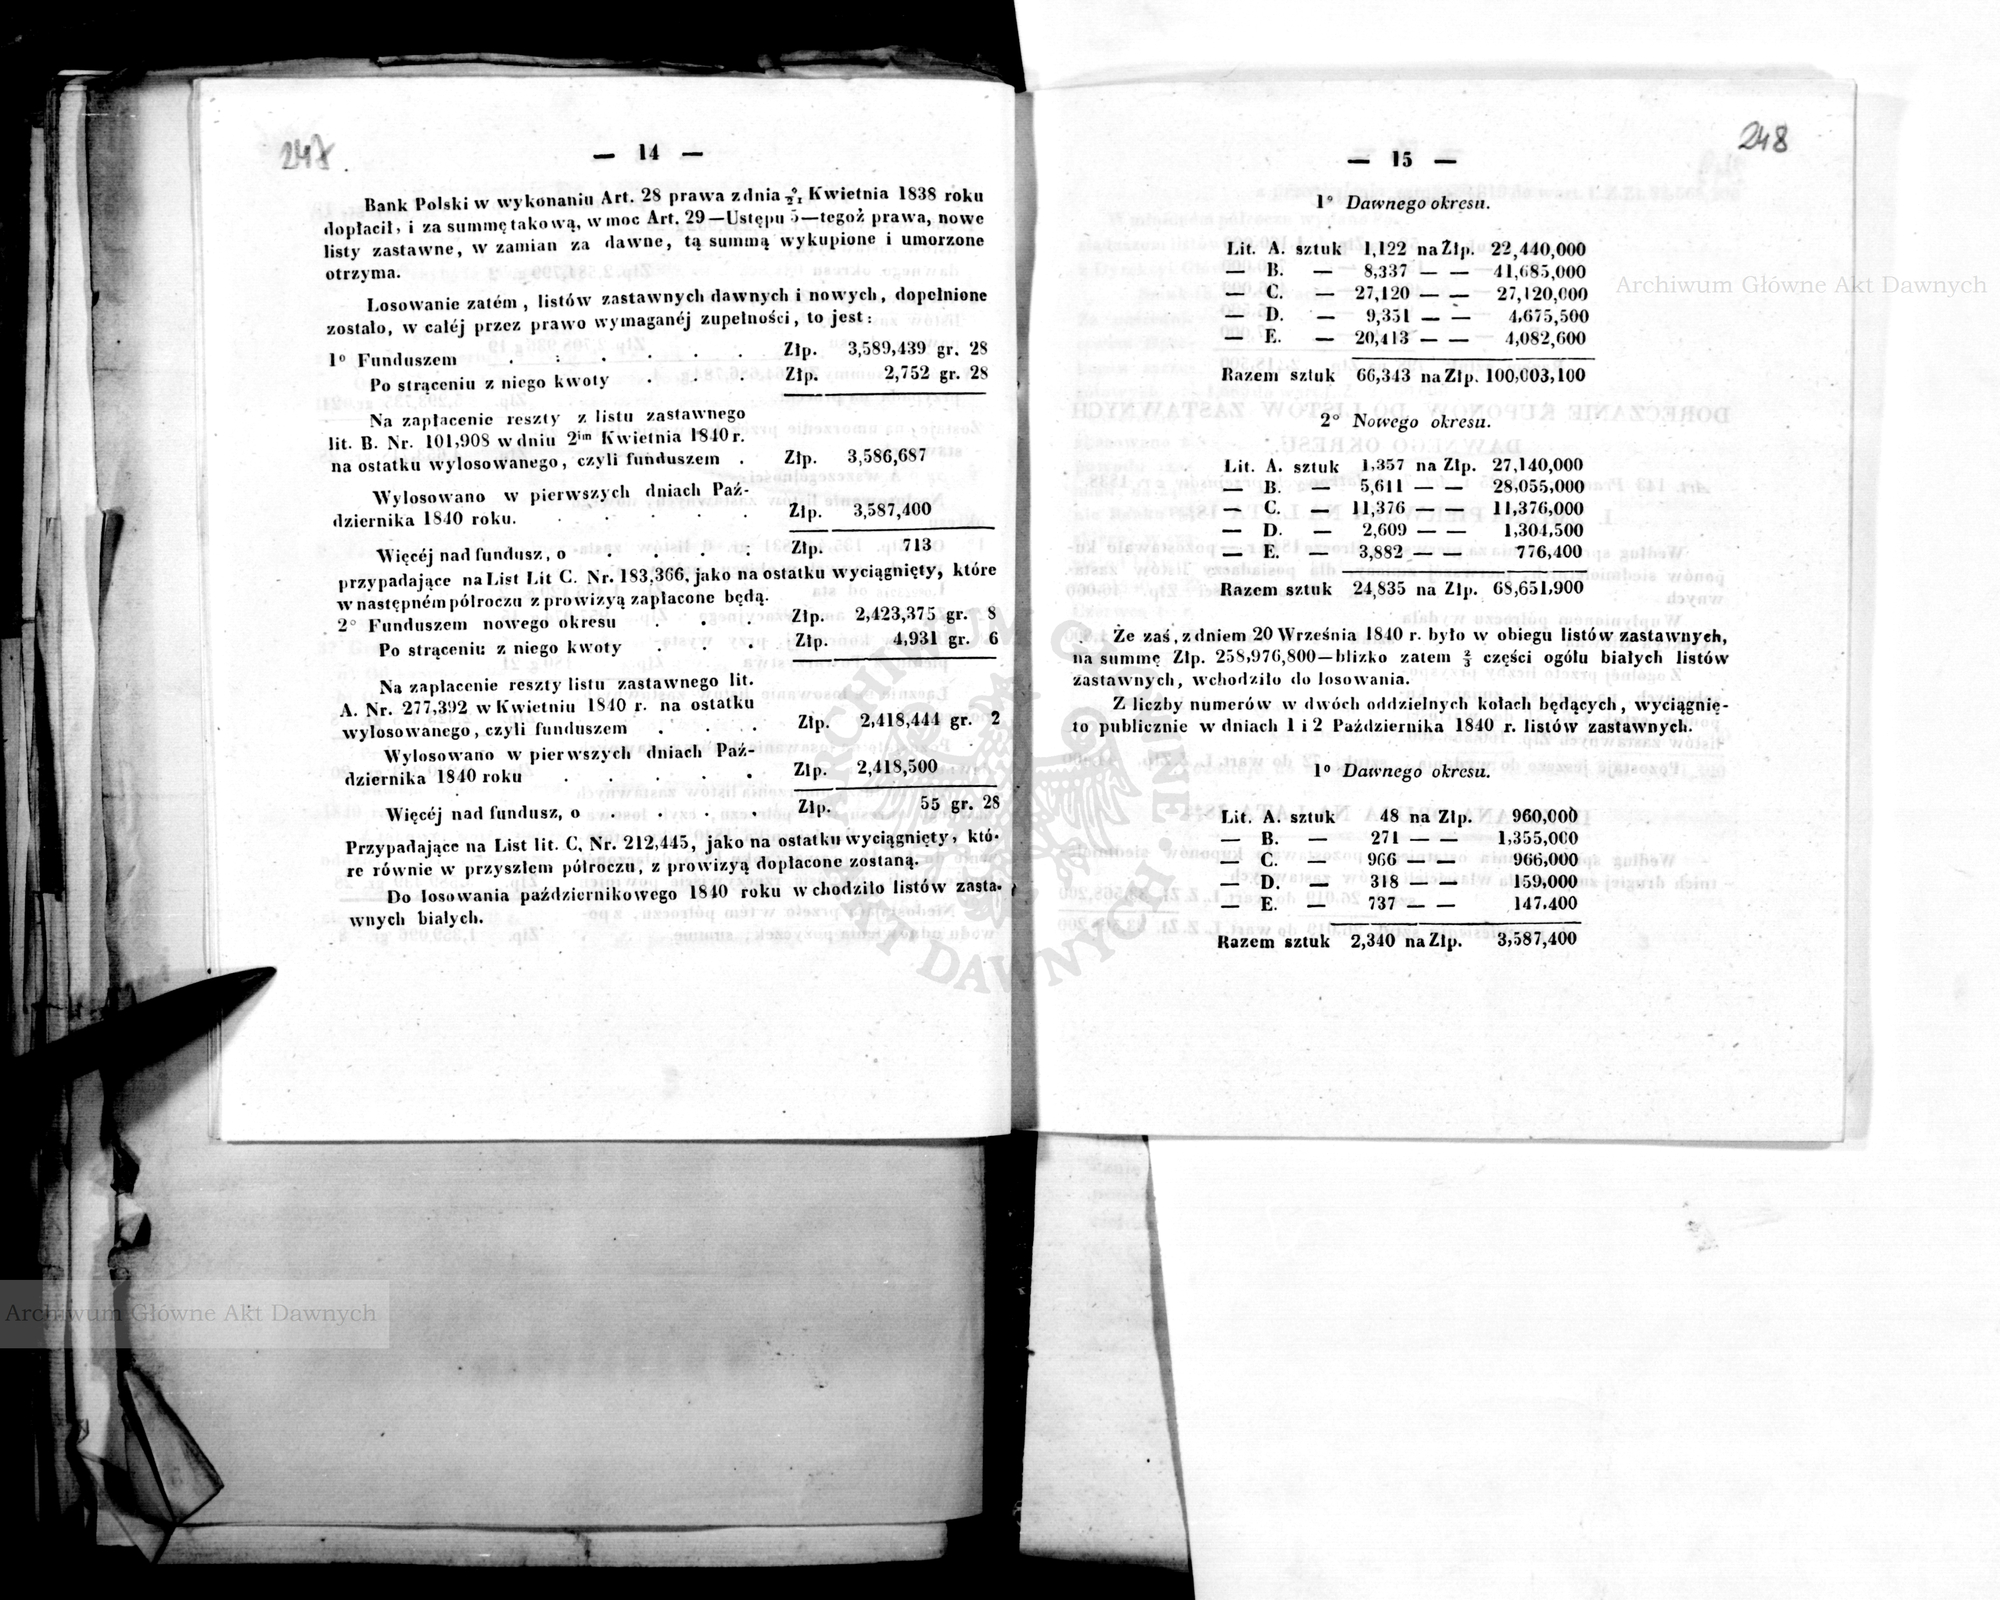 247
— 14 —
Bank Polski w wykonaniu Art. 28 prawa z dnia 9/21 Kwietnia 1838 roku
dopłacił, i za summę takową, w moc Art. 29—Ustępu 5—tegoż prawa, nowe
listy zastawne, w zamian za dawne, tą summą wykupione i umorzone
otrzyma.
Losowanie zatém, listów zastawnych dawnych i nowych, dopełnione
zostało, w całéj przez prawo wymaganéj zupełności, to jest:
1º Funduszem . : . . . . Złp. 3,589,439 gr. 28
Po strąceniu z niego kwoty . . . Złp. 2,752 gr. 28
Na zapłacenie reszty z listu zastawnego
lit. B. Nr. 101,908 w dniu 2im Kwietnia 1840 r.
na ostatku wylosowanego, czyli funduszem . Złp. 3,586,687
Wylosowano w pierwszych dniach Paź-
dziernika 1840 roku. . . . . . Złp. 3,587,400
Więcéj nad fundusz, o . . . : Złp. 713
przypadające na List Lit C. Nr. 183,366, jako na ostatku wyciągnięty, które
w następném półroczu z prowizyą zapłacone będą.
2º Funduszem nowego okresu . . Złp. 2,423,375 gr. 8
Po strąceniu z niego kwoty . . . Złp. 4,931 gr. 6
Na zapłacenie reszty listu zastawnego lit.
A. Nr. 277,392 w Kwietniu 1840 r. na ostatku
wylosowanego, czyli funduszem . . . Złp. 2,418,444 gr. 2
Wylosowano w pierwszych dniach Paź-
dziernika 1840 roku . . . . . Złp. 2,418,500
Więcéj nad fundusz, o . . . . Złp. 55 gr. 28
Przypadające na List lit. C. Nr. 212,445, jako na ostatku wyciągnięty, któ-
re równie w przyszłem półroczu, z prowizyą dopłacone zostaną.
Do losowania październikowego 1840 roku wchodziło listów zasta-
wnych białych.
248
— 15 —
1º Dawnego okresu.
Lit. A. sztuk 1,122 na Złp. 22,440,000
— B. — 8,337 — — 41,685,000
— C. — 27,120 — — 27,120,000
— D. — 9,351 — — 4,675,500
— E. — 20,413 — — 4,082,600
Razem sztuk 66,343 na Złp. 100,003,100
2º Nowego okresu.
Lit. A. sztuk 1,357 na Złp. 27,140,000
— B. — 5,611 — — 28,055,000
— C. — 11,376 — — 11,376,000
— D. — 2,609 — — 1,304,500
— E. — 3,882 — — 776,400
Razem sztuk 24,835 na Złp. 68,651,900
Że zaś, z dniem 20 Września 1840 r. było w obiegu listów zastawnych,
na summę Złp. 258,976,800—blizko zatem 2/3 części ogółu białych listów
zastawnych, wchodziło do losowania.
Z liczby numerów w dwóch oddzielnych kołach będących, wyciągnię-
to publicznie w dniach 1 i 2 Października 1840 r. listów zastawnych.
1º Dawnego okresu.
Lit. A. sztuk 48 na Złp. 960,000
— B. — 271 — — 1,355,000
— C. — 966 — — 966,000
— D. — 318 — — 159,000
— E. — 737 — — 147,400
Razem sztuk 2,340 na Złp. 3,587,400
Archiwum Główne Akt Dawnych
Archiwum Główne Akt Dawnych
ARCHIWUM GŁÓWNE AKT DAWNYCH